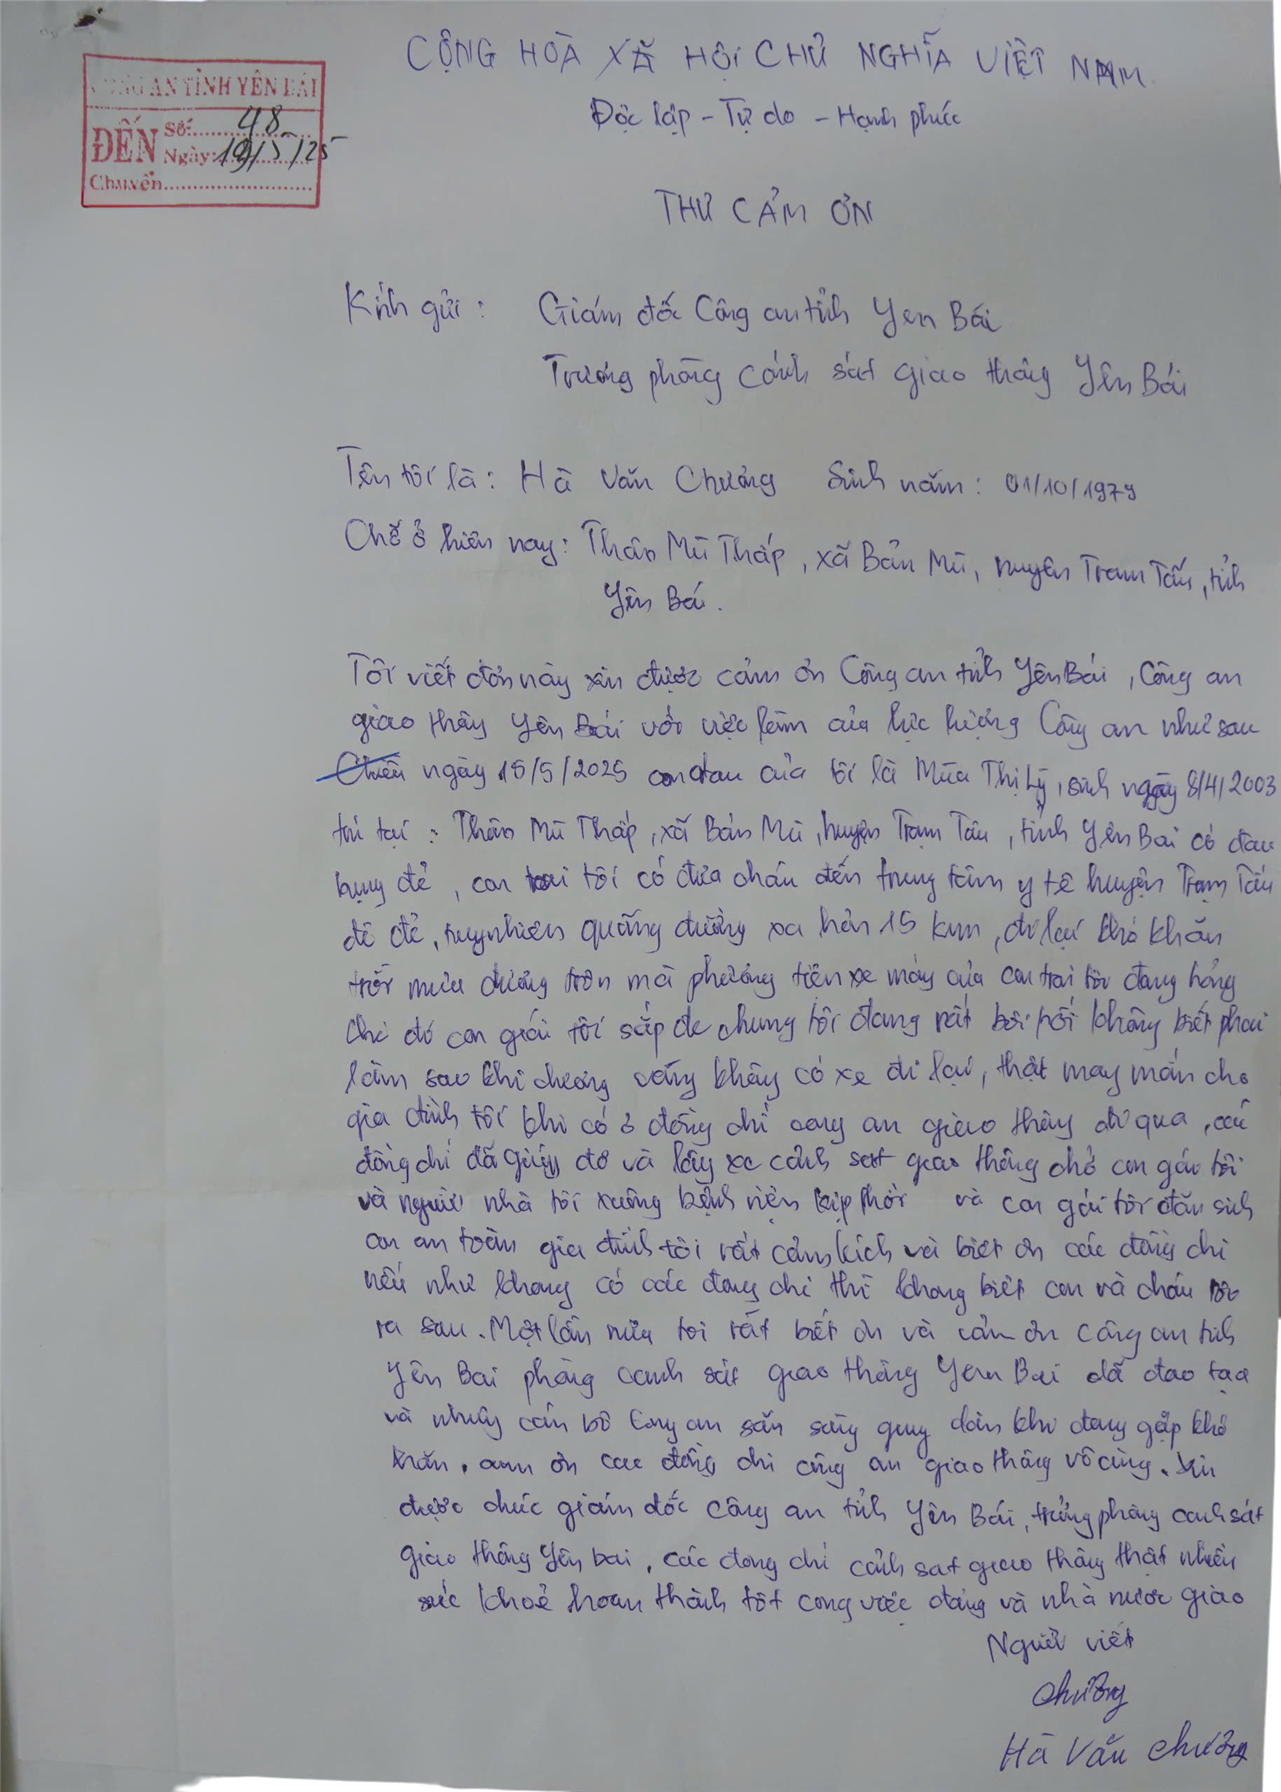 CÔNG AN TỈNH YÊN BÁI
ĐẾN Số: 48
Ngày: 19/5/25
Chuyển
CỘNG HOÀ XÃ HỘI CHỦ NGHĨA VIỆT NAM
Độc lập - Tự do - Hạnh phúc
THƯ CẢM ƠN
Kính gửi: Giám đốc Công an tỉnh Yen Bái
Trưởng phòng cảnh sát giao thông Yên Bái
Tên tôi là: Hà Văn Chưởng Sinh năm: 01/10/1979
Chỗ ở hiện nay: Thôn Mù Thấp, xã Bản Mù, huyện Trạm Tấu, tỉnh
Yên Bái.
Tôi viết đơn này xin được cảm ơn Công an tỉnh Yên Bái, Công an
giao thông Yên Bái với việc làm của lực lượng Công an như sau
Chiều ngày 15/5/2025 con dau của tôi là Mùa Thị Lý, sinh ngày 8/4/2003
trú tại: Thôn Mù Thấp, xã Bản Mù, huyện Trạm Tấu, tỉnh Yên Bai có đau
bụng đẻ, con trai tôi có đưa cháu đến trung tâm y tế huyện Trạm Tấu
để đẻ, tuy nhiên quãng đường xa hơn 15 km, đi lại khó khăn
trời mưa đường trơn mà phương tiện xe máy của con trai tôi đang hỏng
đó con gái tôi sắp đe chung tôi đang rất bối rối không biết phai
làm sao khi đương vắng không có xe đi lại, thật may mắn cho
gia đình tôi khi có 3 đồng chí cong an giao thông đi qua, các
đồng chí đã giúp đơ và lấy xe cảnh sat giao thông chở con gái tôi
và người nhà tôi xuống bệnh viện kịp thời và con gái tôi đã sinh
con an toàn gia đình tôi rất cảm kích và biết ơn các đồng chi
nếu như khong có các đong chi thì khong biết con và cháu tôi
ra sau. Một lần nữa toi rất biết ơn và cảm ơn công an tỉnh
Yên Bai phòng canh sát giao thông Yen Bai đã đao tạo
và những cán bộ Cong an sẵn sàng giúp dân khi đang gặp khó
khăn. cam ơn cac đồng chi công an giao thông vô cùng. Xin
được chúc giám đốc công an tỉnh Yên Bái, trưởng phòng canh sát
giao thông Yên bai, các đong chi cảnh sat giao thông thật nhiều
sức khoẻ hoan thành tốt cong việc đảng và nhà nước giao
Người viết
Chưởng
Hà Văn Chưởng